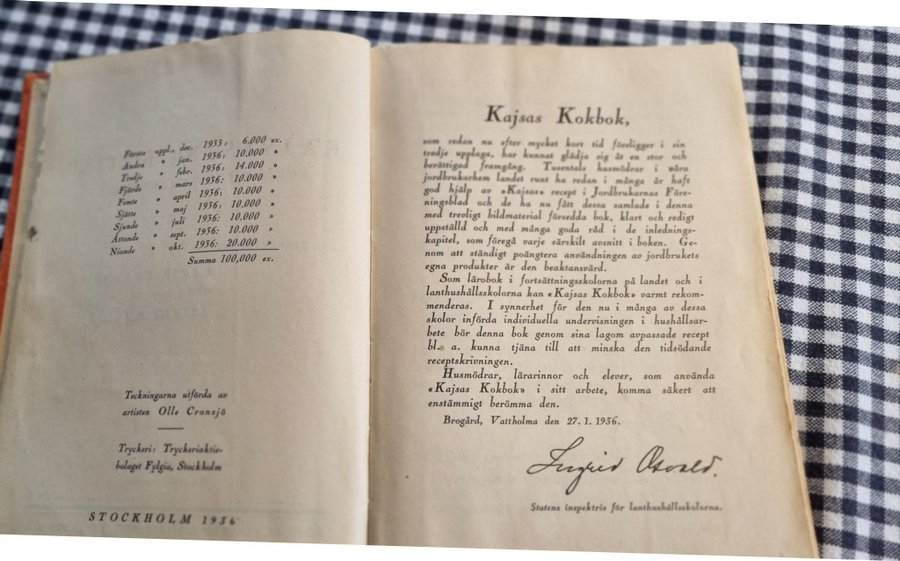 Första uppl., dec. 1935: 6.000 ex.
Andra » jan. 1936: 10.000 »
Tredje » febr. 1936: 14.000 »
Fjärde » mars 1936: 10.000 »
Femte » april 1936: 10.000 »
Sjätte » maj 1936: 10.000 »
Sjunde » juli 1936: 10.000 »
Åttonde » sept. 1936: 10.000 »
Nionde » okt. 1936: 20.000 »
Summa 100,000 ex.
Teckningarna utförda av
artisten Olle Cronsjö
Tryckeri: Tryckeriaktie-
bolaget Fylgia, Stockholm
STOCKHOLM 1936
Kajsas Kokbok,
som redan nu efter mycket kort tid föreligger i sin
tredje upplaga, har kunnat glädja sig åt en stor och
berättigad framgång. Tusentals husmödrar i våra
jordbrukarhem landet runt ha redan i många år haft
god hjälp av «Kajsas» recept i Jordbrukarnas Före-
ningsblad och de ha nu fått dessa samlade i denna
med trevligt bildmaterial försedda bok, klart och redigt
uppställd och med många goda råd i de inlednings-
kapitel, som föregå varje särskilt avsnitt i boken. Ge-
nom att ständigt poängtera användningen av jordbrukets
egna produkter är den beaktansvärd.
Som lärobok i fortsättningsskolorna på landet och i
lanthushållsskolorna kan «Kajsas Kokbok» varmt rekom-
menderas. I synnerhet för den nu i många av dessa
skolor införda individuella undervisningen i hushållsar-
bete bör denna bok genom sina lagom avpassade recept
bl. a. kunna tjäna till att minska den tidsödande
receptskrivningen.
Husmödrar, lärarinnor och elever, som använda
«Kajsas Kokbok» i sitt arbete, komma säkert att
enstämmigt berömma den.
Brogård, Vattholma den 27. 1. 1936.
Ingrid Osvald.
Statens inspektris för lanthushållsskolorna.